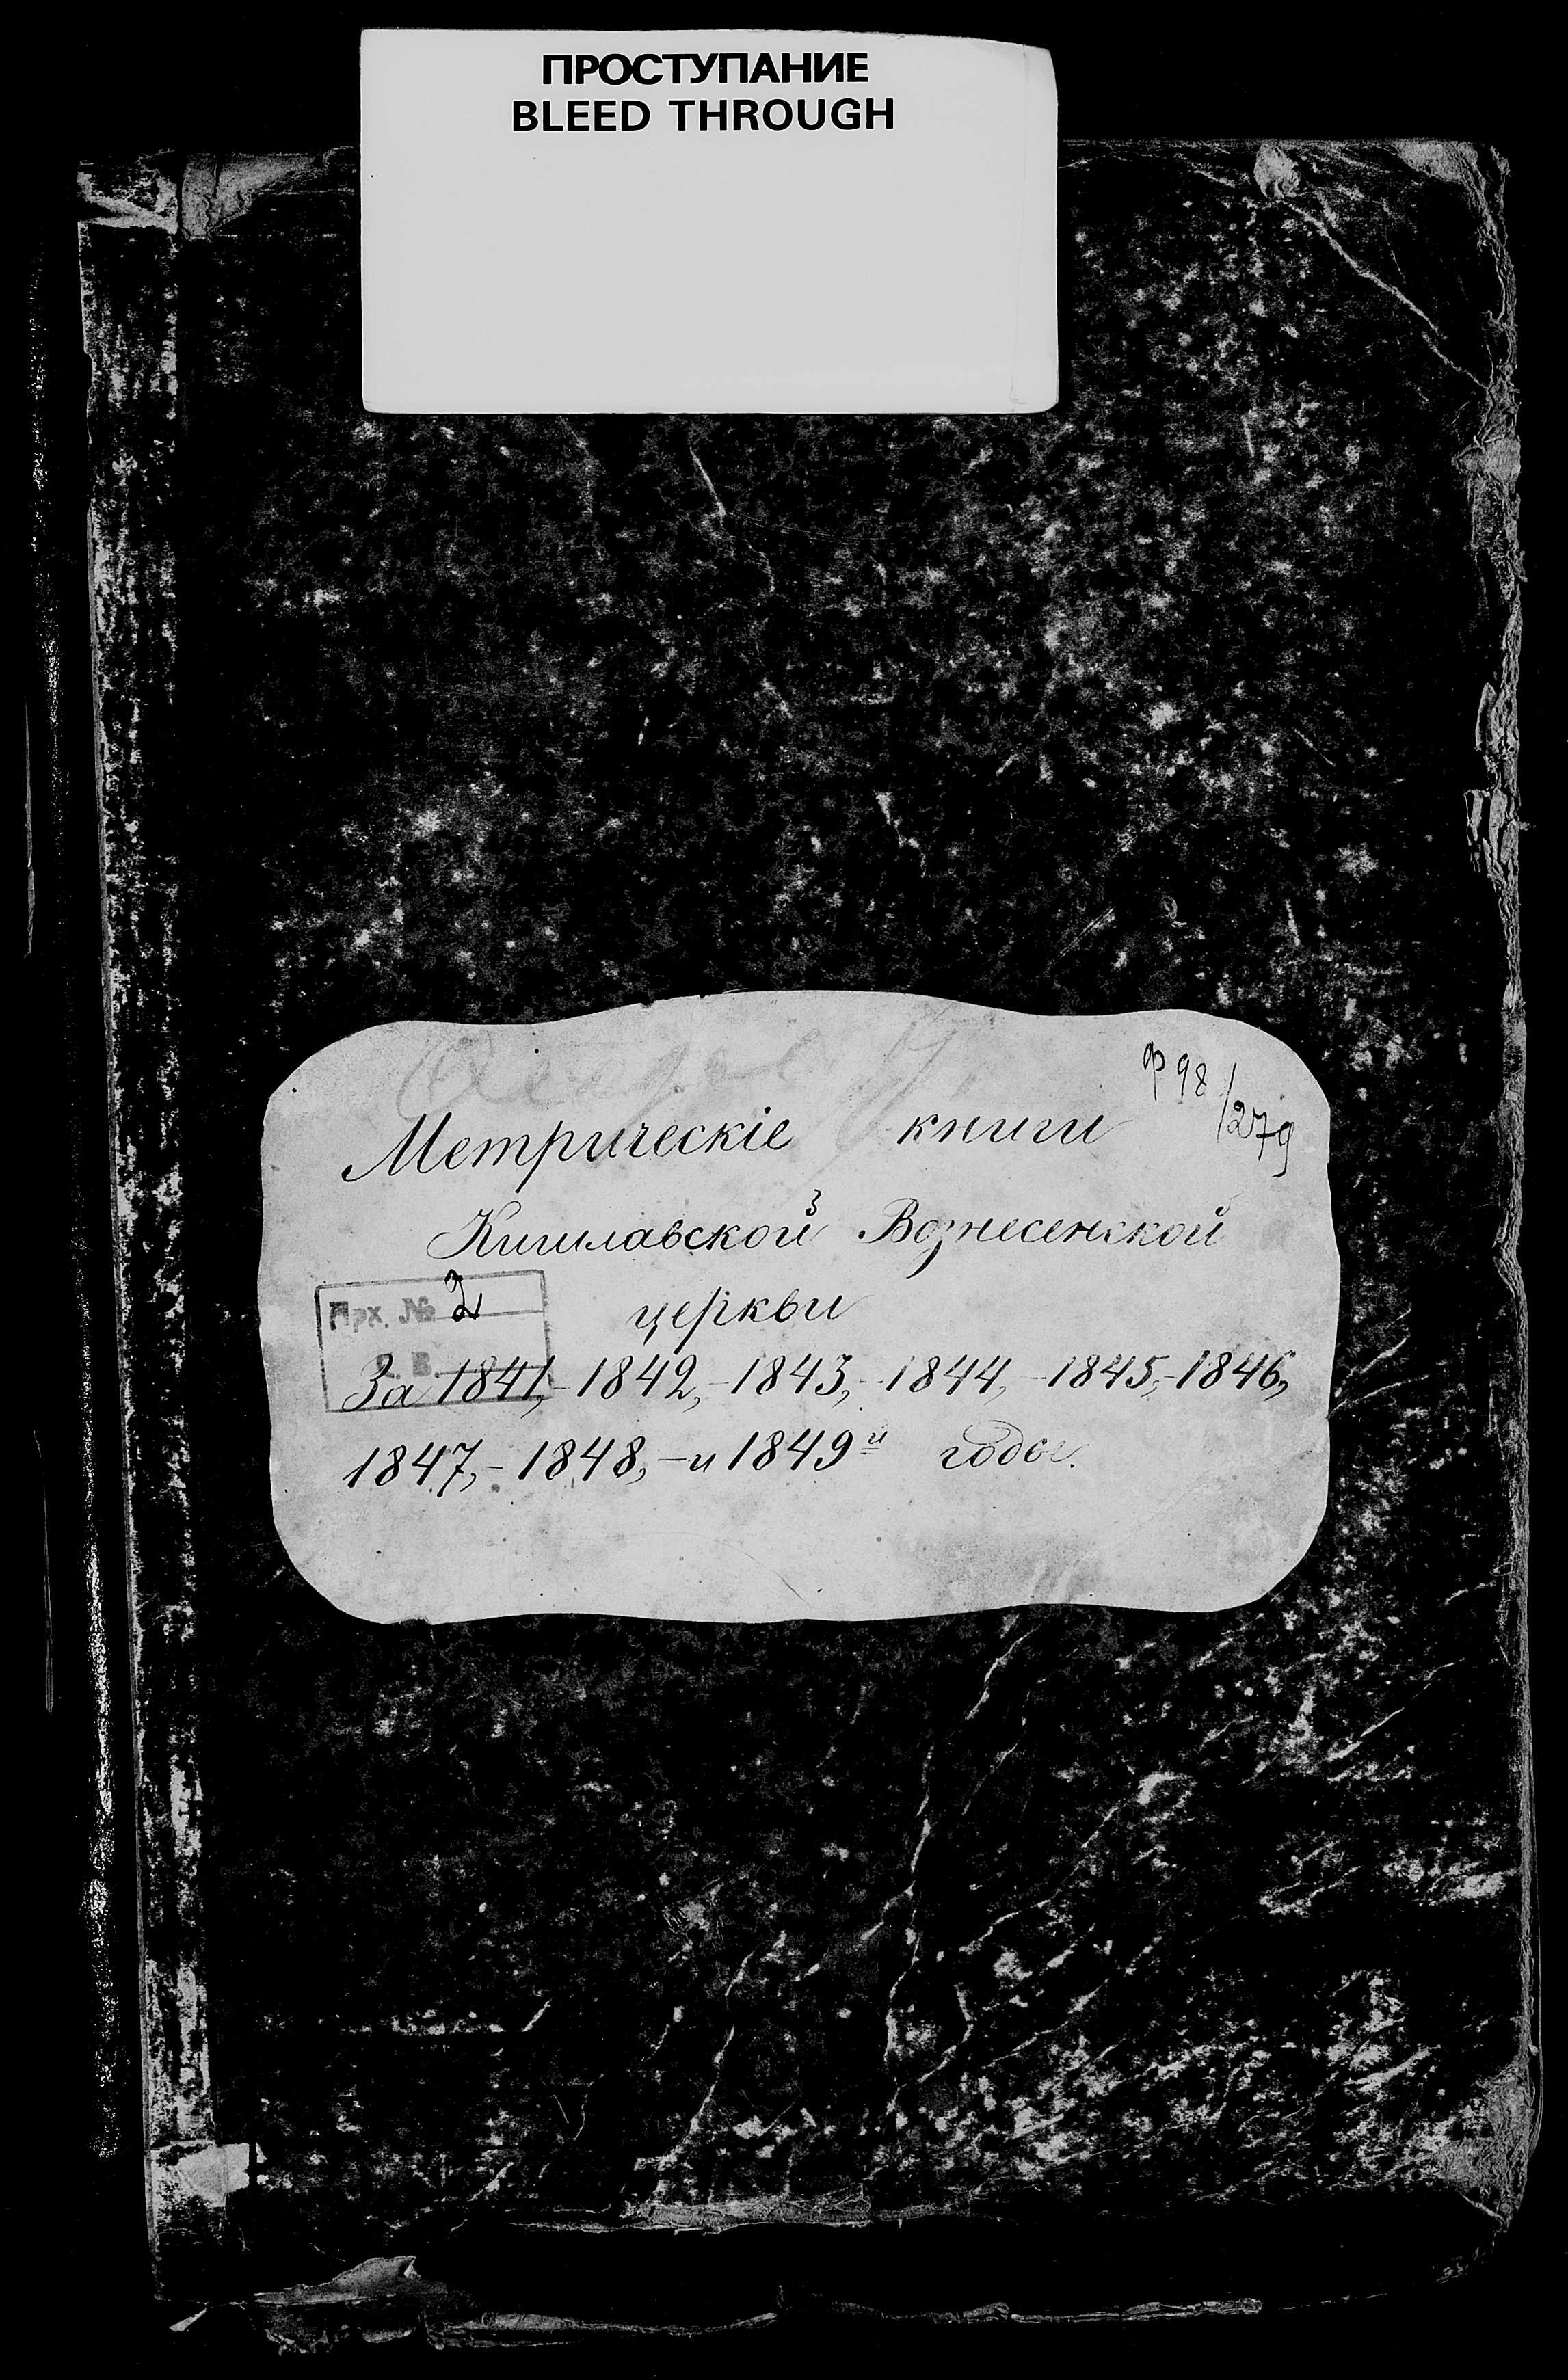 ПРОСТУПАНИЕ
BLEED THROUGH
Ф 98/279
Метрическіе книги
Кишлавской Вознесенской
Арх. № 2
церкви
За 1841,-1842,-1843,-1844,-1845,-1846,
1847,-1848,-и 1849й годы.